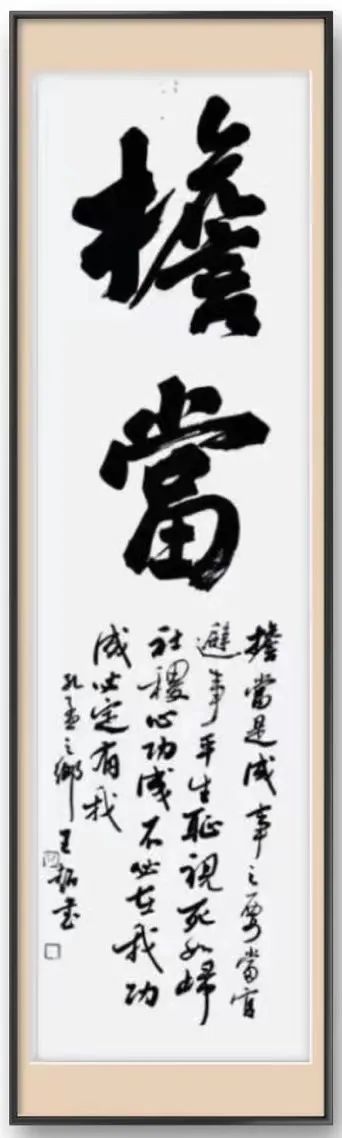 擔當
擔當是成事之要當官
避事平生恥視死如歸
社稷心功成不必在我功
成必定有我
孔孟之鄉王書